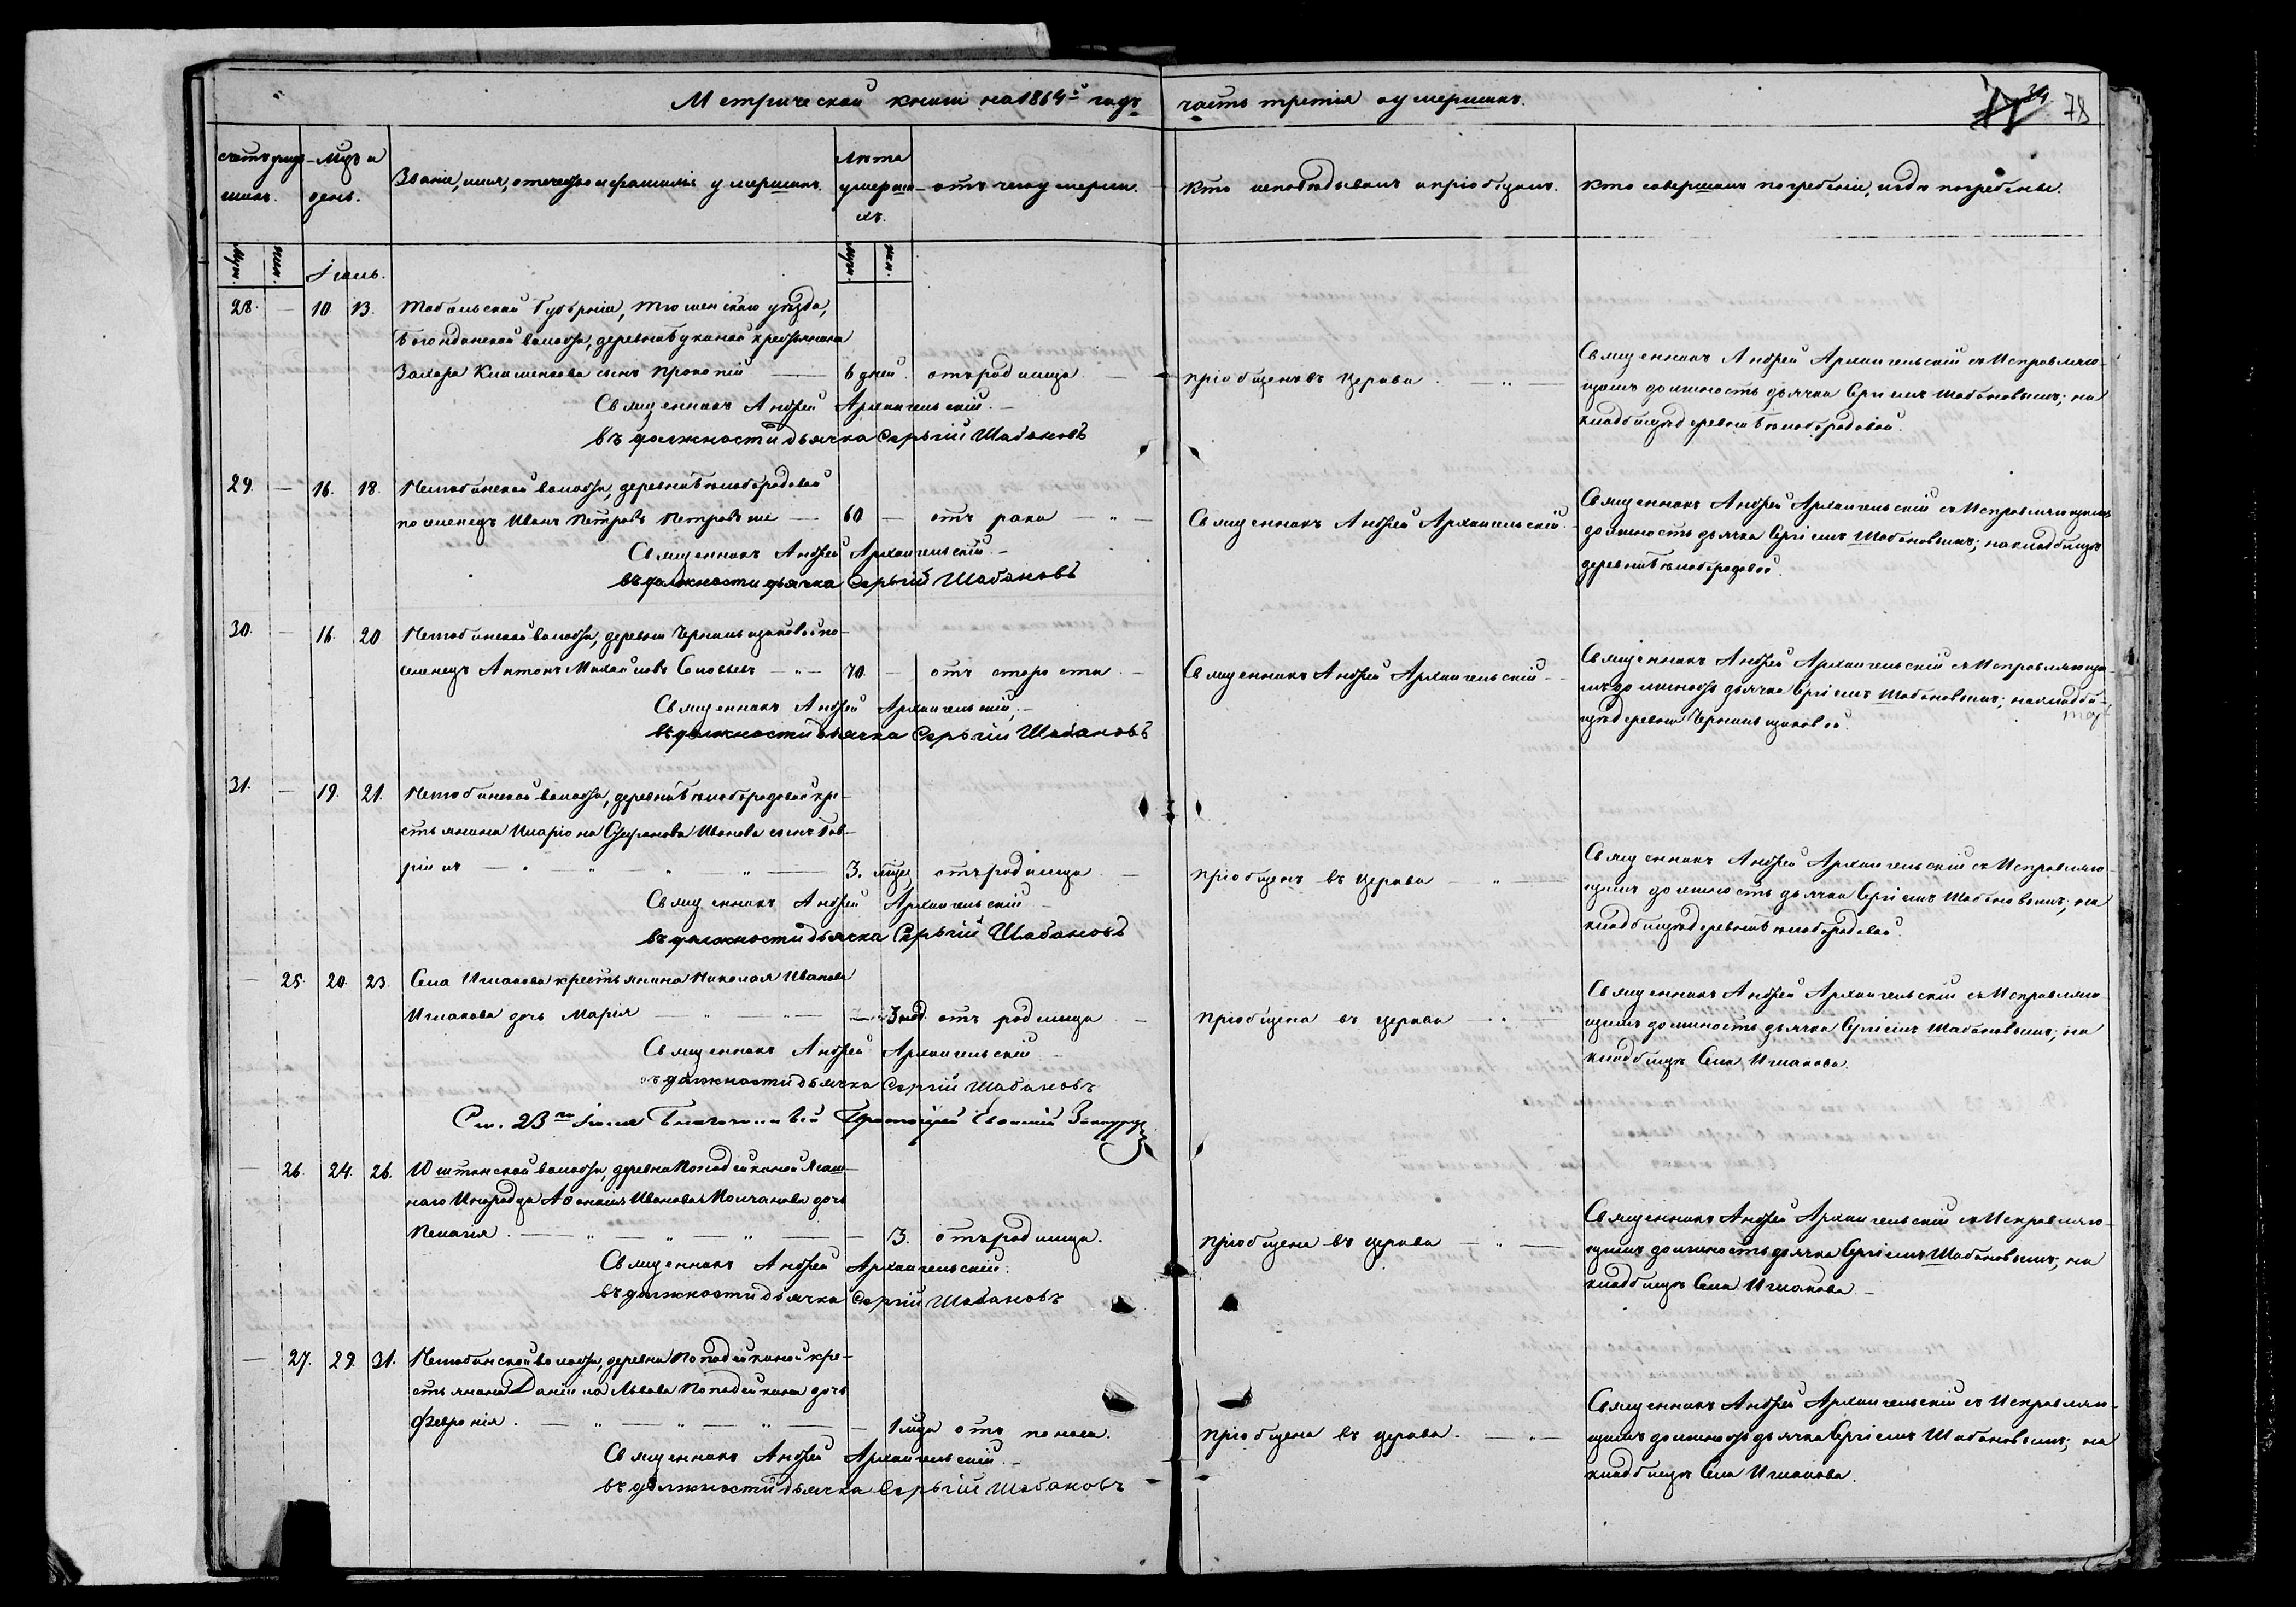 Метрической книги на 1864й годъ
часть третія о умершихъ.
34 78
счетъ умер-
шихъ.
Мѣц и
день.
Званіе, имя, отечество и фамилія умершихъ.
Лѣта
умерш-
ихъ.
отъ чего умерли.
Кто исповѣдывалъ и пріобщалъ.
Кто совершалъ погребеніе, и гдѣ погребены.
муж. жен. Іюль. муж. жен.
28. — 10. 13. Тобольской Губерніи, Тюменскаго уѣзда,
Богондинской волости, деревни Букиной крестьянина
Захара Климентова сынъ Прокопій — 6 дней. отъ родимца — пріобщенъ въ Церкви. — „ —
Священникъ Андрей Архангельскій съ Исправляю-
щимъ должность дьячка Сергіемъ Шабановымъ; на
кладбищѣ деревни Бѣлобородовой.
Священникъ Андрей Архангельскій. —
въ должности дьячка Сергій Шабановъ
29. — 16. 18. деревни Бѣлобородовой
поселенецъ Иванъ Петровъ — 60 — отъ рака — „ — Священникъ Андрей Архангельскій. —
Священникъ Андрей Архангельскій съ Исправляющимъ
должность дьячка Сергіемъ Шабановымъ; на кладбищѣ
деревни Бѣлобородовой.
Священникъ Андрей Архангельскій. —
въ должности дьячка Сергій Шабановъ
30. — 16. 20. деревни по-
селенецъ Антонъ Михайловъ Соловьевъ — „ — 70. — отъ старости. — Священникъ Андрей Архангельскій —
Священникъ Андрей Архангельскій съ Исправляющи-
мъ должность дьячка Сергіемъ Шабановымъ; на кладби-
щѣ деревни
Священникъ Андрей Архангельскій. —
въ должности дьячка Сергій Шабановъ
31. — 19. 21. деревни Бѣлобородовой кре-
стьянина Иларіона Стефанова Иванова сынъ Гав-
ріилъ — „ — 3. мѣсец. отъ родимца — пріобщенъ въ Церкви — „ —
Священникъ Андрей Архангельскій съ Исправляю-
щимъ должность дьячка Сергіемъ Шабановымъ; на
кладбищѣ деревни Бѣлобородовой.
Священникъ Андрей Архангельскій —
въ должности дьячка Сергій Шабановъ
— 25. 20. 23. Села Иглакова крестьянина Николая Иванова
Иглакова дочь Марія — „ — „ — 3 нед. отъ родимца — пріобщена въ церкви — „ —
Священникъ Андрей Архангельскій съ Исправляю-
щимъ должность дьячка Сергіемъ Шабановымъ; на
кладбищѣ Села Иглакова.
Священникъ Андрей Архангельскій —
въ должности дьячка Сергій Шабановъ
23го Іюля Протоіерей
— 26. 24. 26. Юштинской волости, деревни Попадейкиной Ясаш-
наго Инородца Афанасія Иванова Молчанова дочь
Пелагія. — „ — „ — „ — 3. отъ родимца. пріобщена въ церкви — „ —
Священникъ Андрей Архангельскій съ Исправляю-
щимъ должность дьячка Сергіемъ Шабановымъ; на
кладбищѣ Села Иглакова —
Священникъ Андрей Архангельскій.
въ должности дьячка Сергій Шабановъ
— 27. 29. 31. деревни Попадейкиной кре-
стьянина Даніила Львова Попадейкина дочь
Февронія. — „ — „ — „ — 1 мѣца отъ поноса. пріобщена въ церкви. — „ —
Священникъ Андрей Архангельскій съ Исправляю-
щимъ должность дьячка Сергіемъ Шабановымъ; на
кладбищѣ Села Иглакова.
Священникъ Андрей Архангельскій. —
въ должности дьячка Сергій Шабановъ